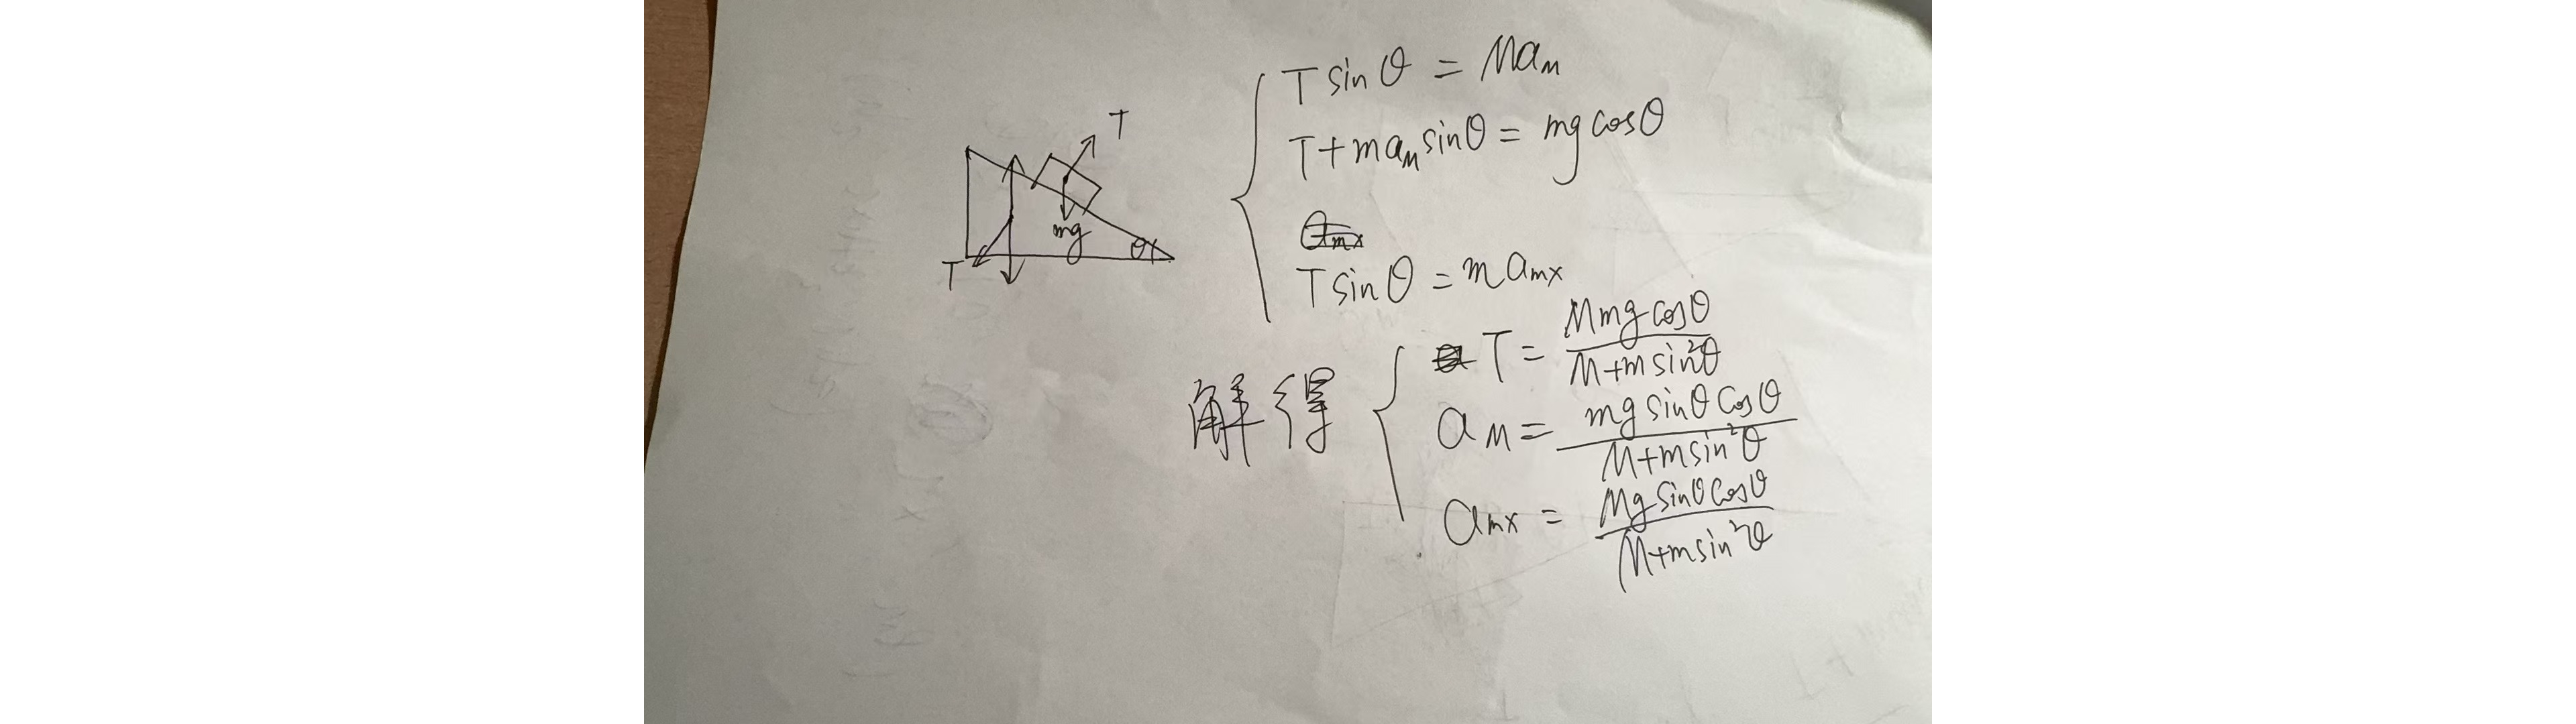 T sinθ = Ma_M
T + ma_M sinθ = mg cosθ
a_mx
T sinθ = m a_mx
T
mg
θ
T
解得
T = Mmg cosθ / (M+m sin²θ)
a_M = mg sinθ cosθ / (M+m sin²θ)
a_mx = Mg sinθ cosθ / (M+m sin²θ)